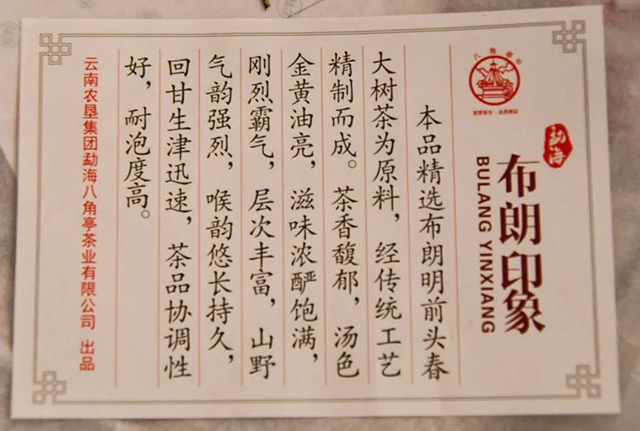 八角亭
勐海
布朗印象
BULANG YINXIANG
本品精选布朗明前头春
大树茶为原料，经传统工艺
精制而成。茶香馥郁，汤色
金黄油亮，滋味浓酽饱满，
刚烈霸气，层次丰富，山野
气韵强烈，喉韵悠长持久，
回甘生津迅速，茶品协调性
好，耐泡度高。
云南农垦集团勐海八角亭茶业有限公司 出品